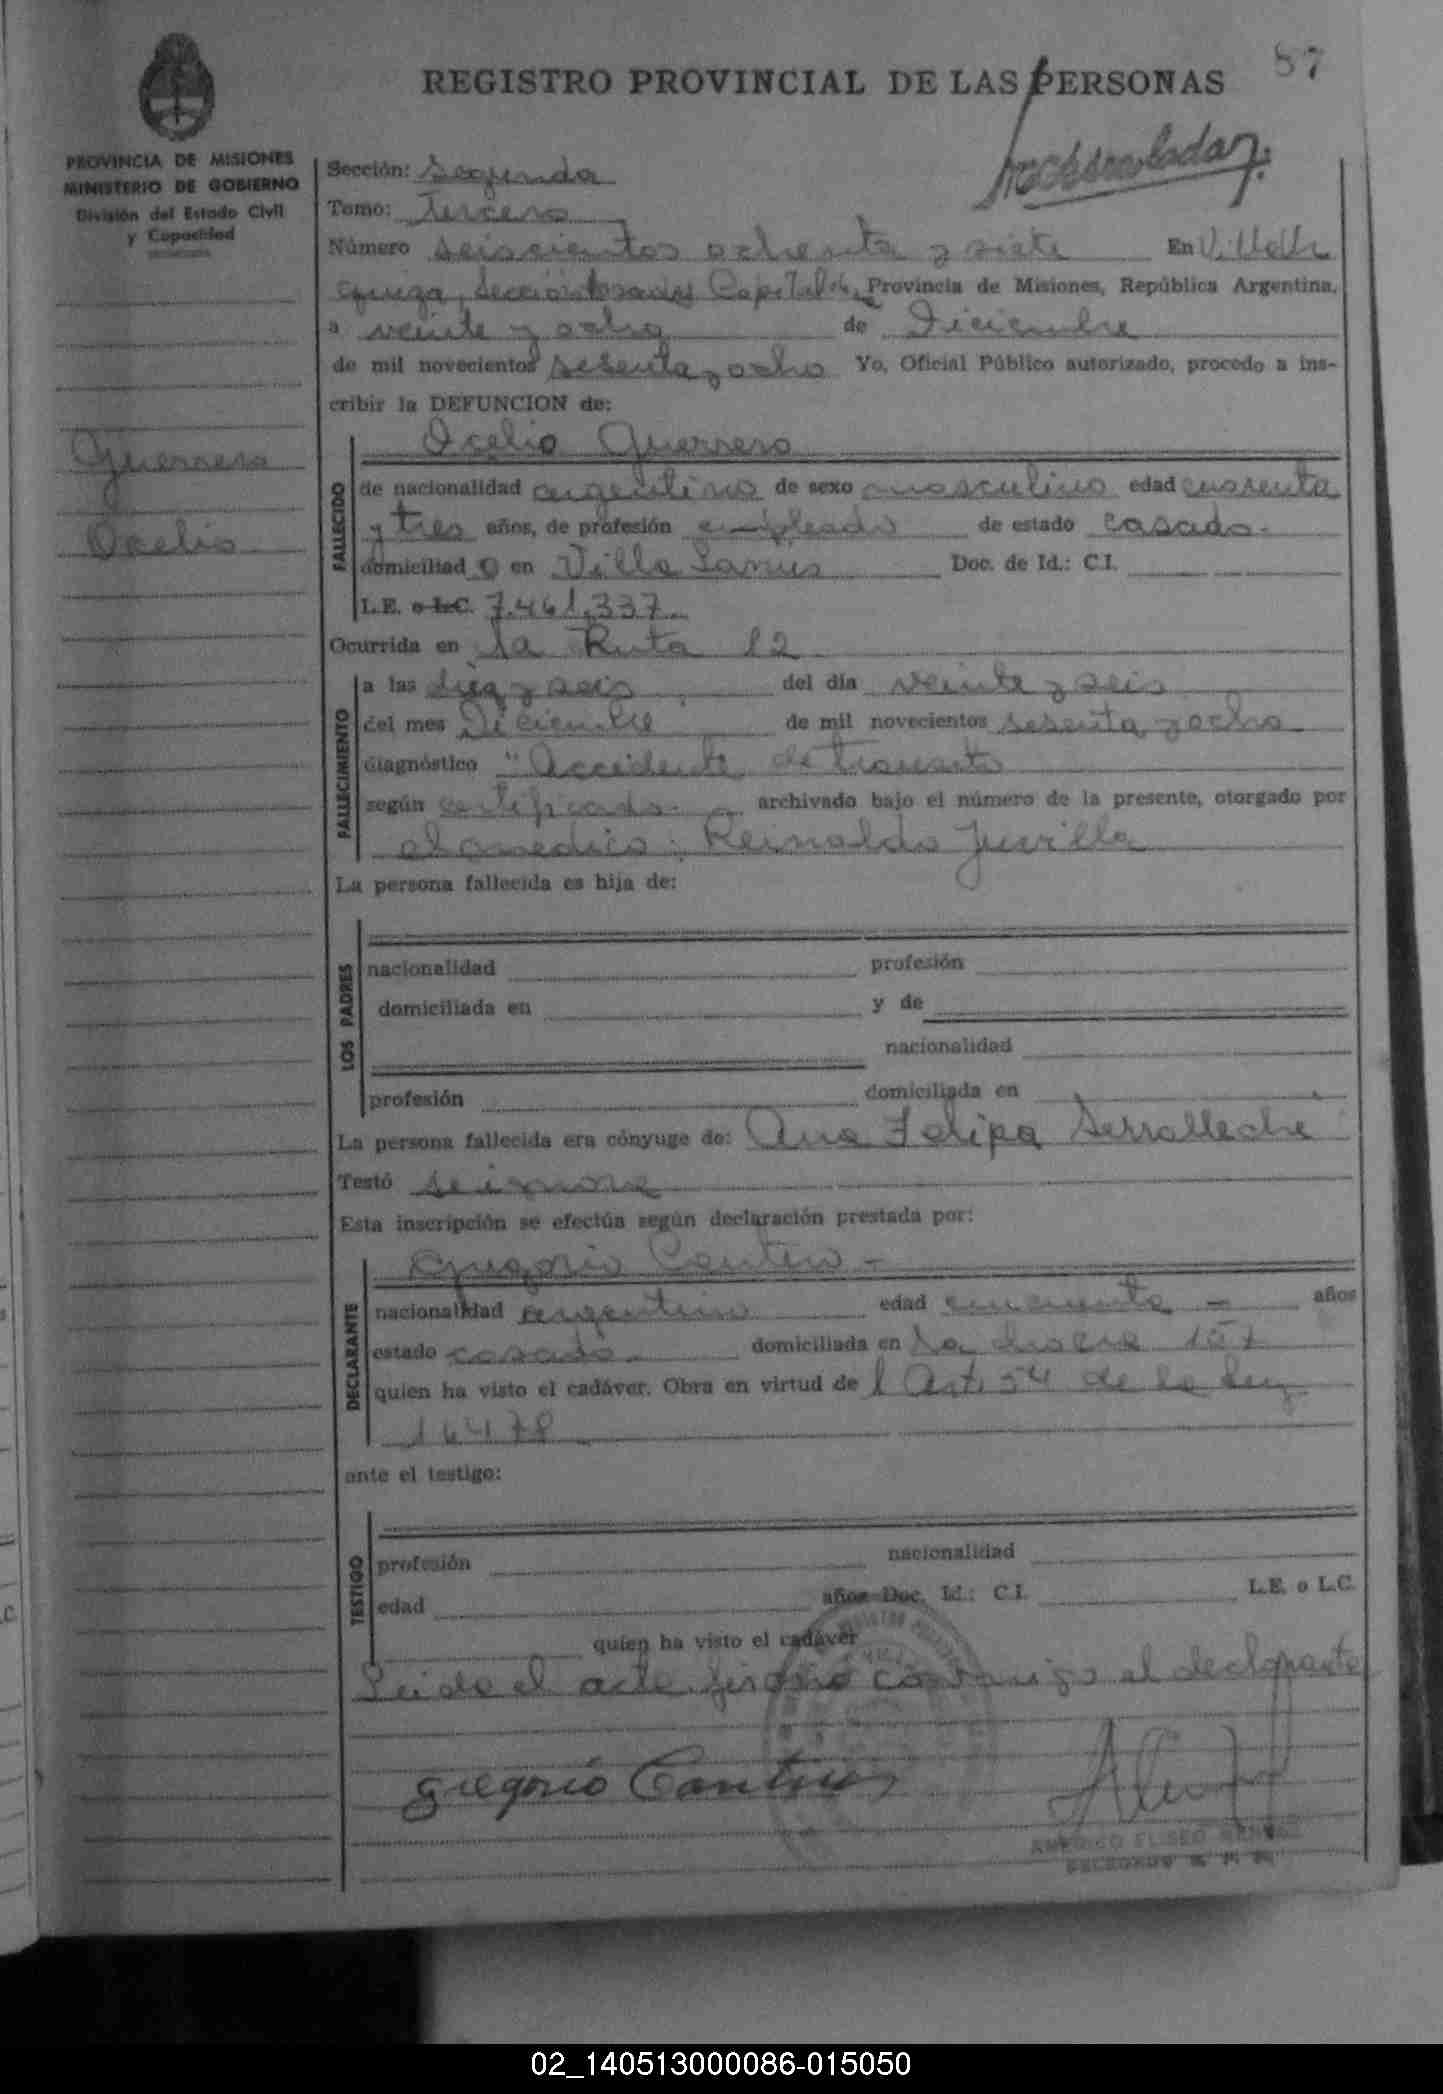 87
REGISTRO PROVINCIAL DE LAS PERSONAS
PROVINCIA DE MISIONES
MINISTERIO DE GOBIERNO
División del Estado Civil
y Capacidad
Sección: Segunda
Tomo: Tercero
Número seiscientos ochenta y siete En Villa Ur
quiza, Sección Posadas Capital Provincia de Misiones, República Argentina,
a veinte y ocho de Diciembre
de mil novecientos sesenta y ocho Yo, Oficial Público autorizado, procedo a ins-
cribir la DEFUNCION de:
Guerrero
Ocelio
FALLECIDO
Ocelio Guerrero
de nacionalidad argentino de sexo masculino edad cuarenta
y tres años, de profesión empleado de estado casado.
domiciliado en Villa Lanús Doc. de Id.: C.I.
L.E. o L.C. 7.461.337
Ocurrida en la Ruta 12
FALLECIMIENTO
a las diez y seis del día veinte y seis
del mes Diciembre de mil novecientos sesenta y ocho
diagnóstico "Accidente de transito
según certificado archivado bajo el número de la presente, otorgado por
el medico: Reinaldo
La persona fallecida es hija de:
LOS PADRES
nacionalidad profesión
domiciliada en y de
nacionalidad
profesión domiciliada en
La persona fallecida era cónyuge de: Ana Felipa
Testó se ignora
Esta inscripción se efectúa según declaración prestada por:
DECLARANTE
Gregorio
nacionalidad argentino edad cincuenta - años
estado casado domiciliada en
quien ha visto el cadáver. Obra en virtud del Art. 54 de la Ley
16478
ante el testigo:
TESTIGO
profesión nacionalidad
edad años Doc. Id.: C.I. L.E. o L.C.
quien ha visto el cadáver
Leida el acta firma conmigo el declarante
gregorio
AMERICO ELISEO
DELEGADO
02_140513000086-015050